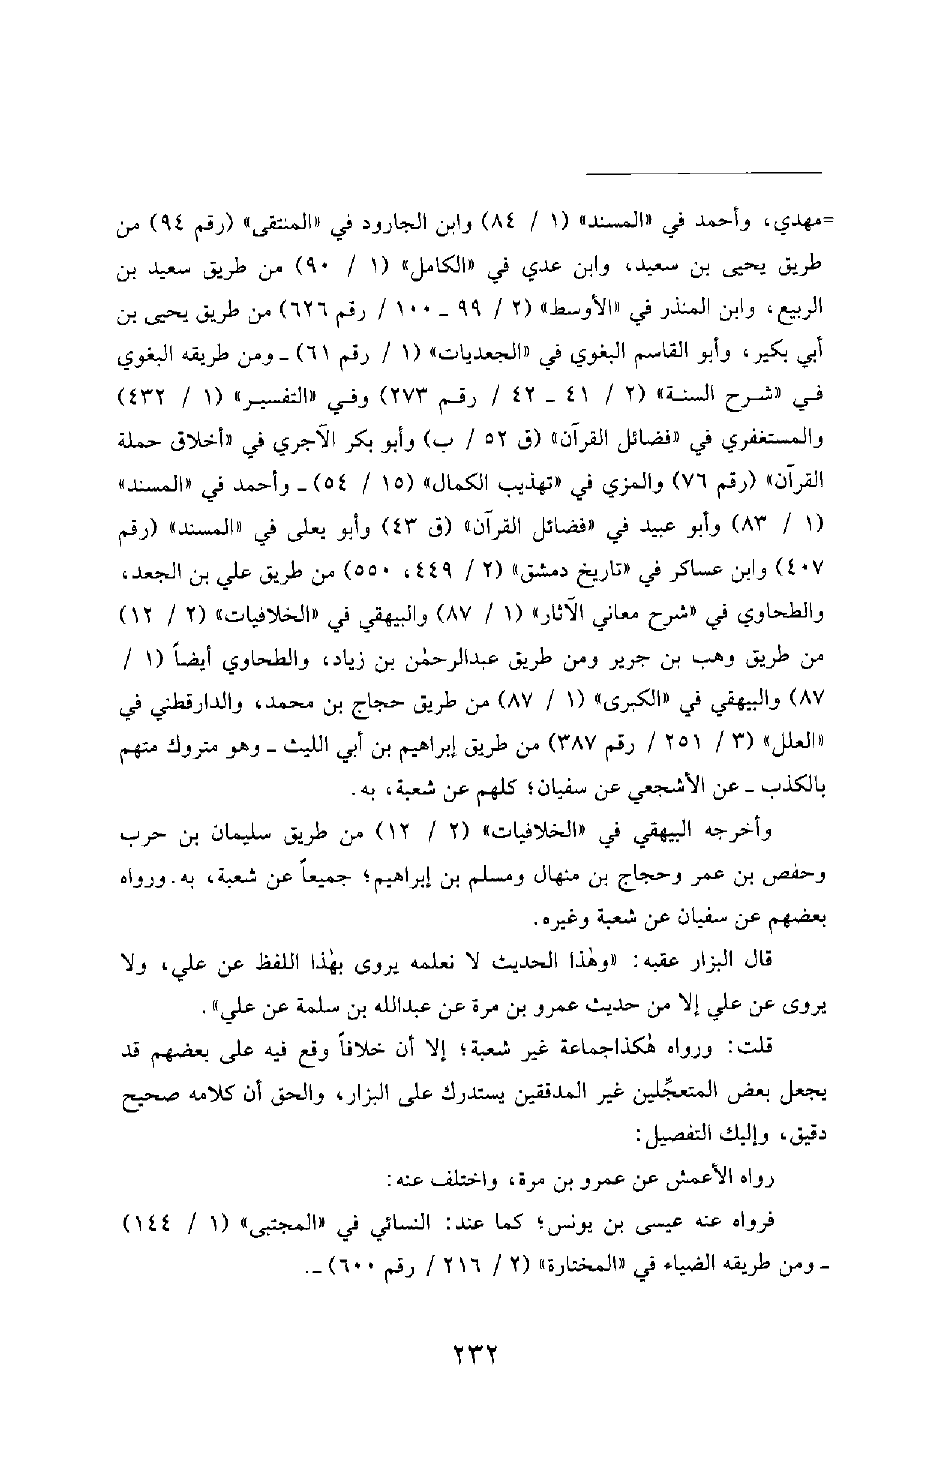 =مهدي، وأحمد في «المسند» (١ / ٨٤) وابن الجارود في «المنتقى» (رقم ٩٤) من
طريق يحيى بن سعيد، وابن عدي في «الكامل» (١ / ٩٠) من طريق سعيد بن
الربيع، وابن المنذر في «الأوسط» (٢ / ٩٩ ـ ١٠٠ / رقم ٦٢٦) من طريق يحيى بن
أبي بكير، وأبو القاسم البغوي في «الجعديات» (١ / رقم ٦١) ـ ومن طريقه البغوي
في «شرح السنة» (٢ / ٤١ ـ ٤٢ / رقم ٢٧٣) وفي «التفسير» (١ / ٤٣٢)
والمستغفري في «فضائل القرآن» (ق ٥٢ / ب) وأبو بكر الآجري في «أخلاق حملة
القرآن» (رقم ٧٦) والمزي في «تهذيب الكمال» (١٥ / ٥٤) ـ وأحمد في «المسند»
(١ / ٨٣) وأبو عبيد في «فضائل القرآن» (ق ٤٣) وأبو يعلى في «المسند» (رقم
٤٠٧) وابن عساكر في «تاريخ دمشق» (٢ / ٤٤٩، ٥٥٠) من طريق علي بن الجعد،
والطحاوي في «شرح معاني الآثار» (١ / ٨٧) والبيهقي في «الخلافيات» (٢ / ١٢)
من طريق وهب بن جرير ومن طريق عبدالرحمٰن بن زياد، والطحاوي أيضاً (١ /
٨٧) والبيهقي في «الكبرى» (١ / ٨٧) من طريق حجاج بن محمد، والدارقطني في
«العلل» (٣ / ٢٥١ / رقم ٣٨٧) من طريق إبراهيم بن أبي الليث ـ وهو متروك متهم
بالكذب ـ عن الأشجعي عن سفيان؛ كلهم عن شعبة، به.
وأخرجه البيهقي في «الخلافيات» (٢ / ١٢) من طريق سليمان بن حرب
وحفص بن عمر وحجاج بن منهال ومسلم بن إبراهيم؛ جميعاً عن شعبة، به. ورواه
بعضهم عن سفيان عن شعبة وغيره.
قال البزار عقبه: «وهٰذا الحديث لا نعلمه يروى بهٰذا اللفظ عن علي، ولا
يروى عن علي إلا من حديث عمرو بن مرة عن عبدالله بن سلمة عن علي».
قلت: ورواه هٰكذاجماعة غير شعبة؛ إلا أن خلافاً وقع فيه على بعضهم قد
يجعل بعض المتعجِّلين غير المدققين يستدرك على البزار، والحق أن كلامه صحيح
دقيق، وإليك التفصيل:
رواه الأعمش عن عمرو بن مرة، واختلف عنه:
فرواه عنه عيسى بن يونس؛ كما عند: النسائي في «المجتبى» (١ / ١٤٤)
ـ ومن طريقه الضياء في «المختارة» (٢ / ٢١٦ / رقم ٦٠٠) ـ.
٢٣٢